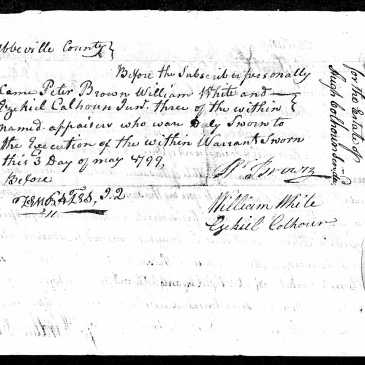 Abbeville County }
Before the Subscriber personally
Came Peter Brown William White and
Ezekiel Calhoun Junr. three of the within
named appraisers who was Duly Sworn to
the Execution of the within Warrant Sworn
this 3 Day of may 1799,
Before
J.P.
Pr. Brown
William White
Ezekiel Colhoun
for the Estate of
Hugh Colhoun